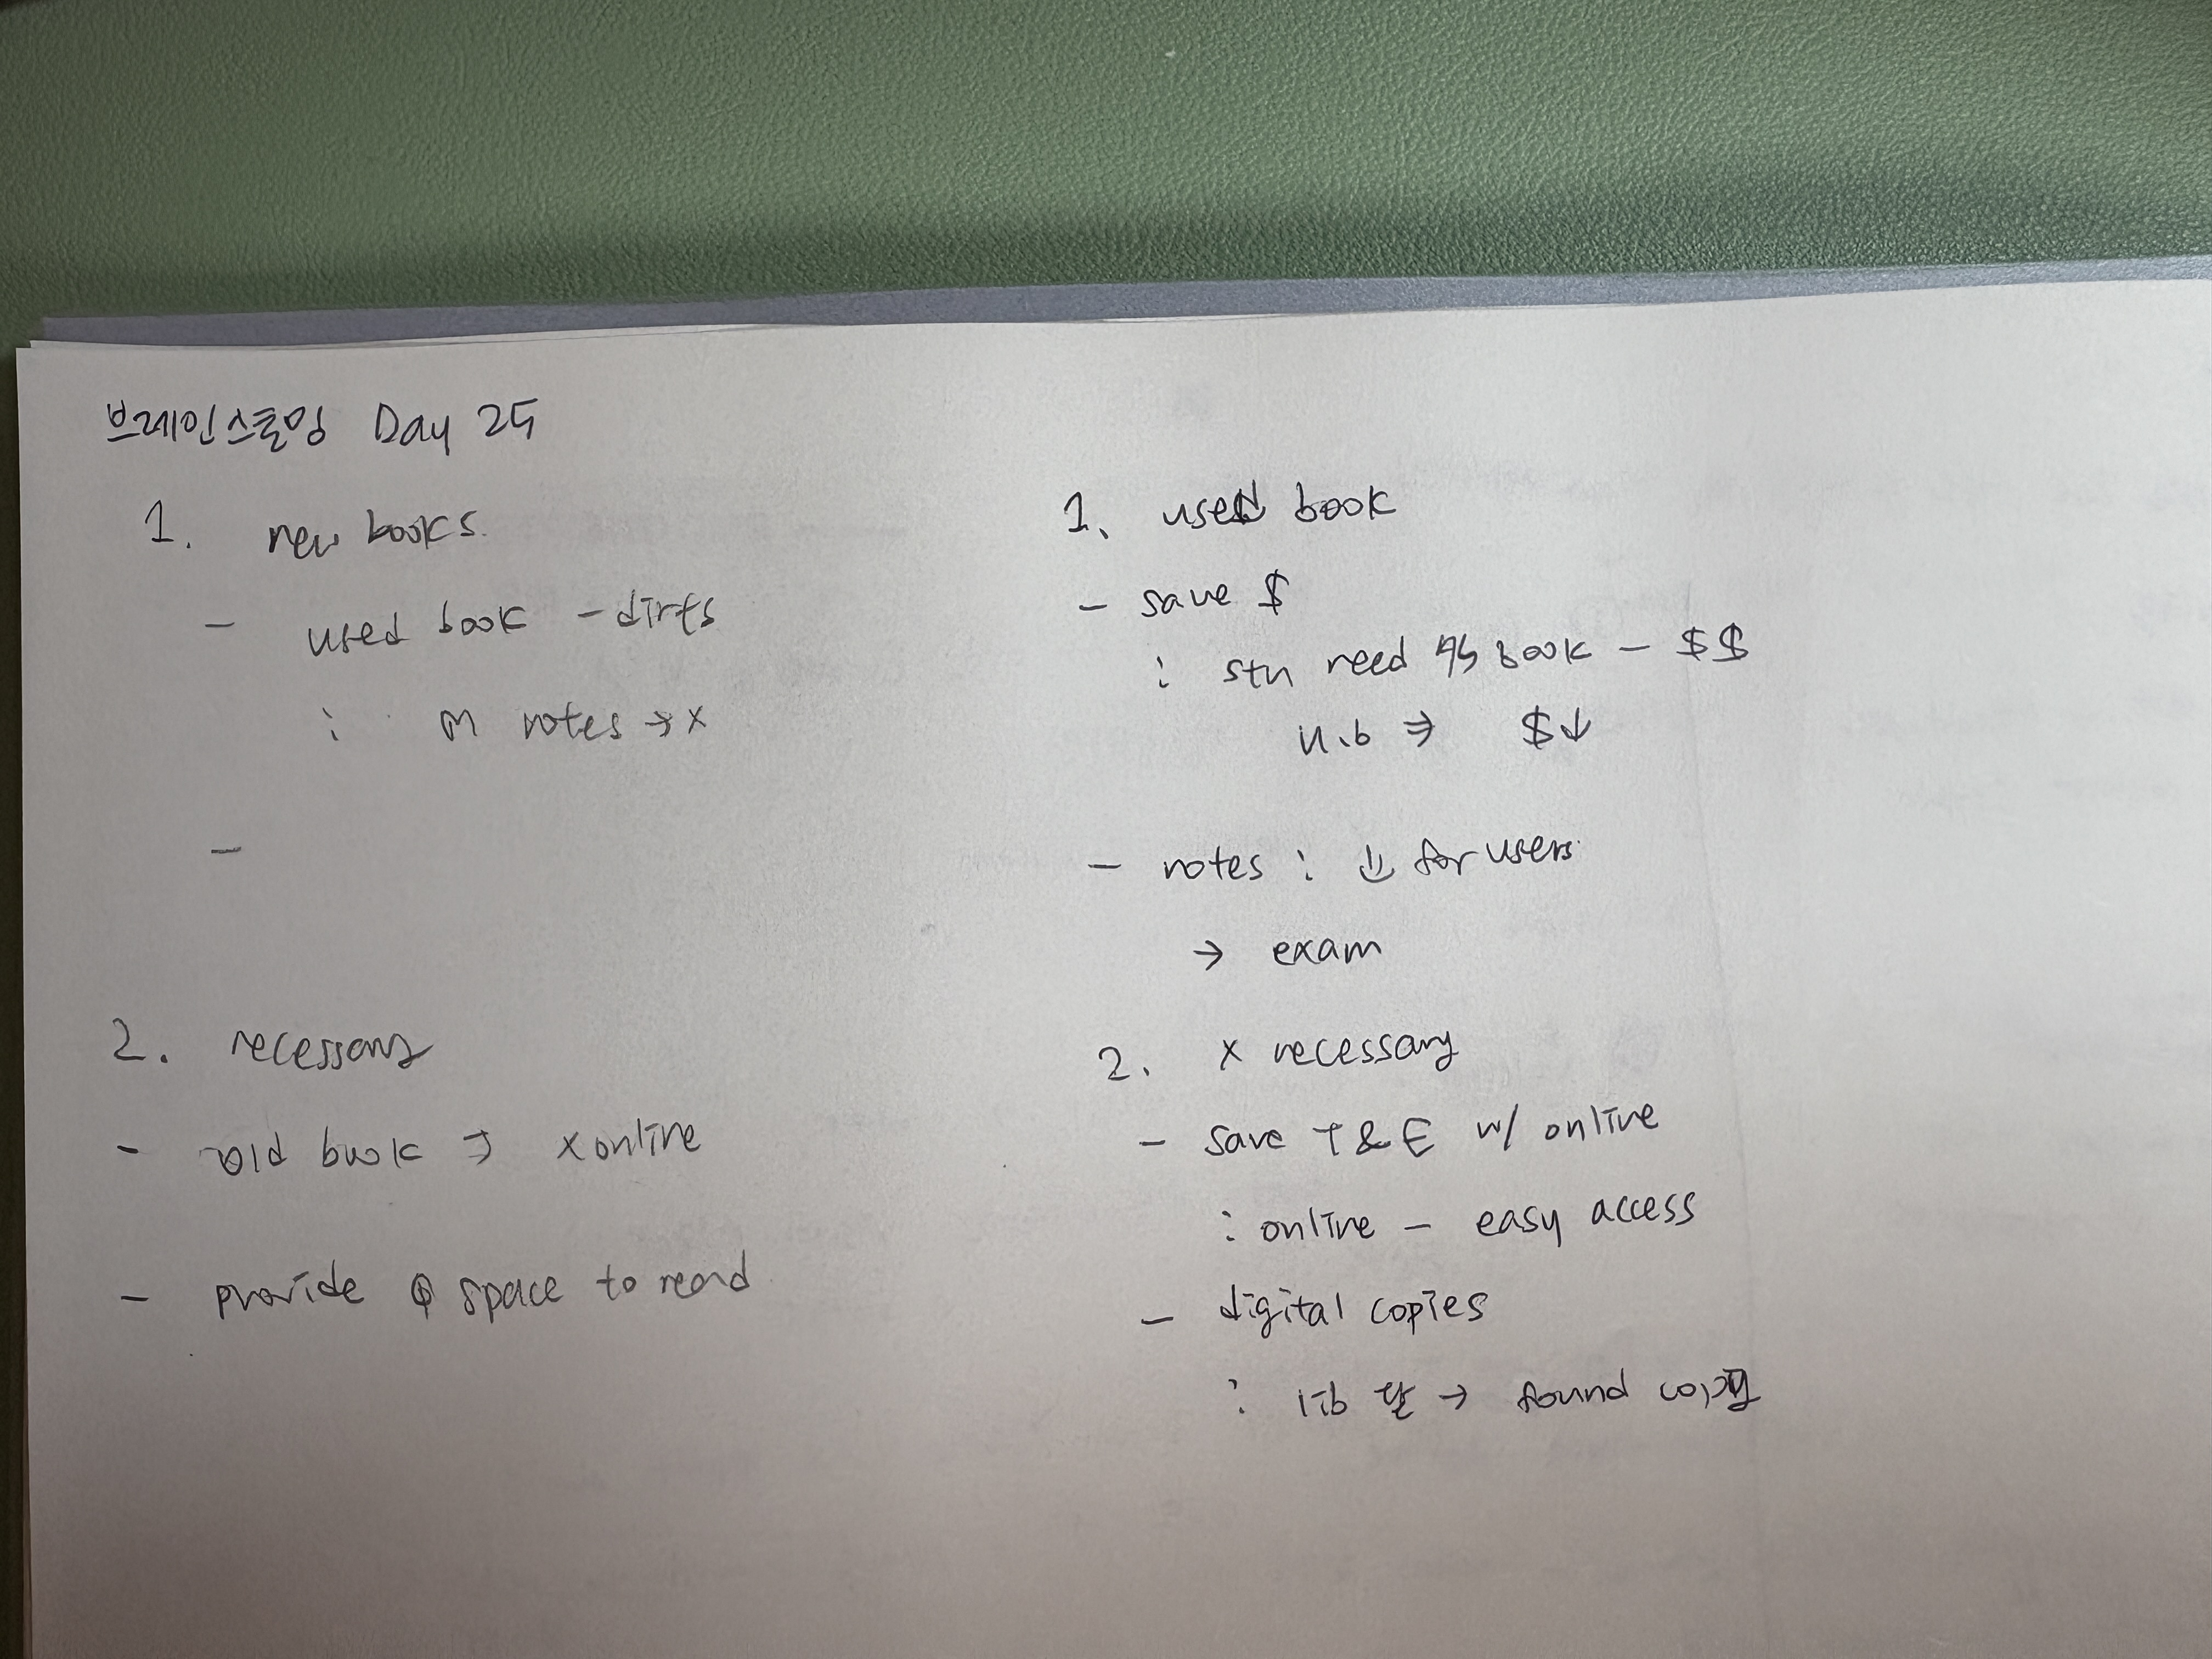 브레인스토밍 Day 25
1. new books
- used book - dirts
: m notes → x
-
2. necessary
- old book ⇒ x online
- provide space to read
1. used book
- save $
: stu need book - $$
u.b ⇒ $↓
- notes : for users
→ exam
2. x necessary
- save T & E w/ online
: online - easy access
- digital copies
: lib → found copy